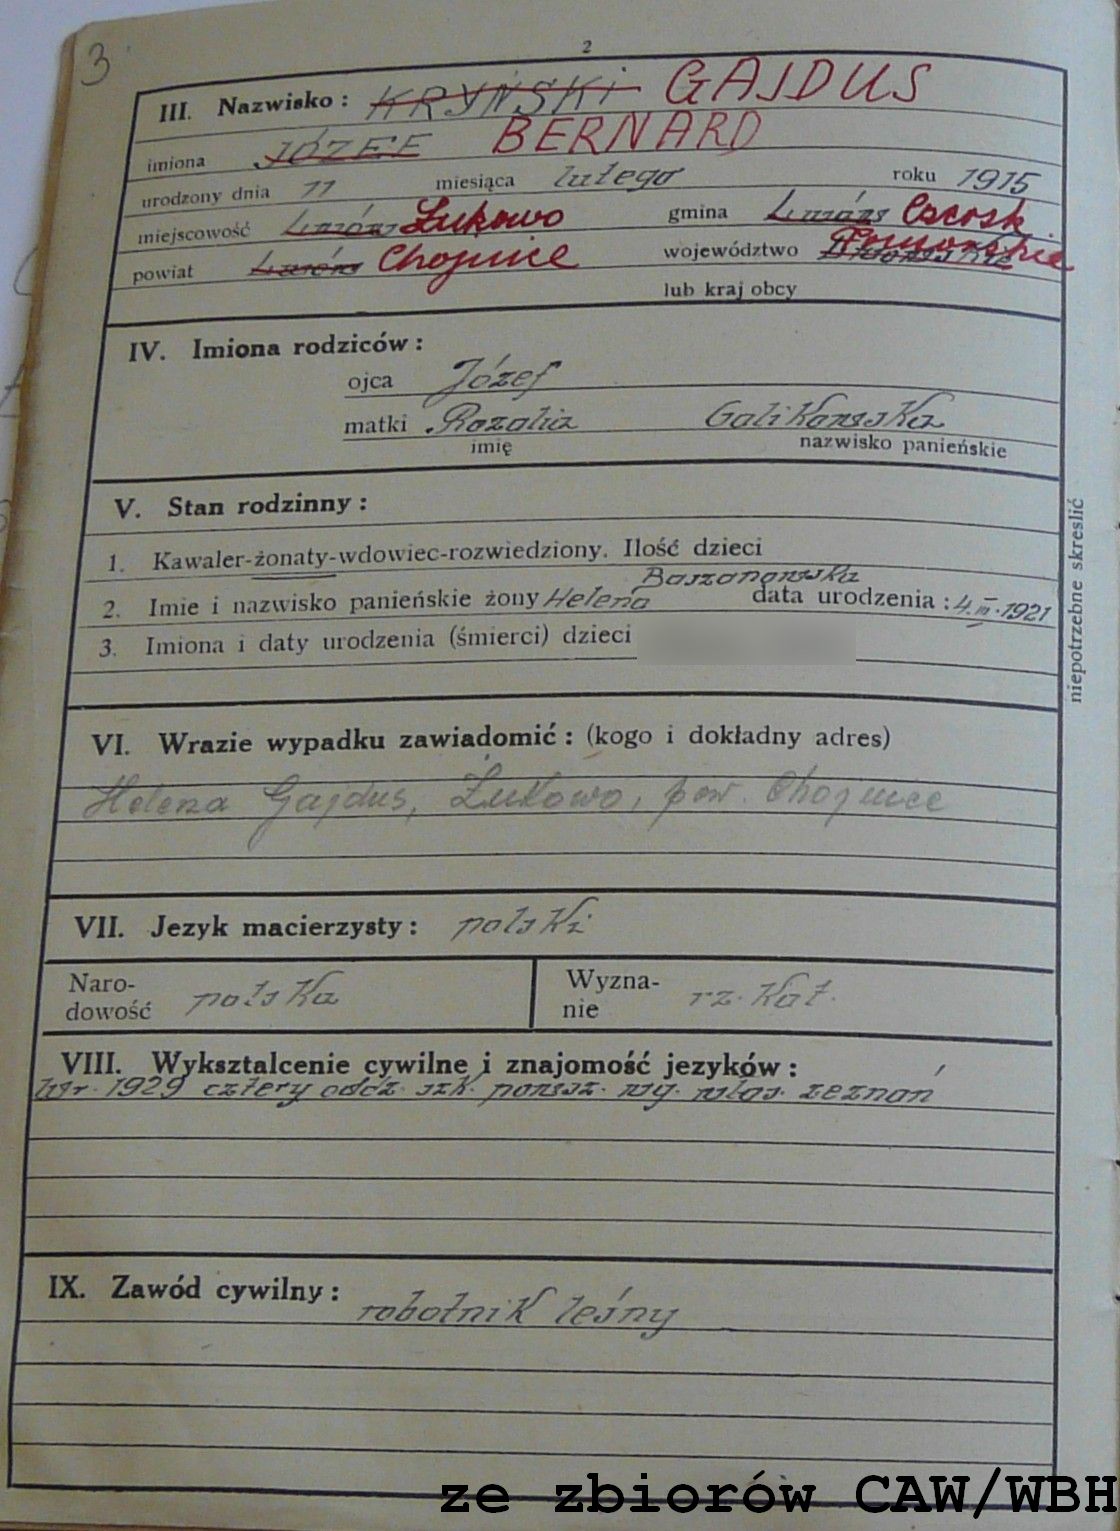 3
2
III. Nazwisko: KRYŃSKi GAJDUS
imiona JÓZEF BERNARD
urodzony dnia 11 miesiąca lutego roku 1915
miejscowość Łukowo gmina Czersk
powiat Chojnice województwo Pomorskie
lub kraj obcy
IV. Imiona rodziców:
ojca Józef
matki Rozalia Galikowska
imię nazwisko panieńskie
V. Stan rodzinny:
1. Kawaler-żonaty-wdowiec-rozwiedziony. Ilość dzieci
2. Imie i nazwisko panieńskie żony Helena Baszanowska data urodzenia: 4.III.1921
3. Imiona i daty urodzenia (śmierci) dzieci
niepotrzebne skreslić
VI. Wrazie wypadku zawiadomić: (kogo i dokładny adres)
Helena Gajdus, Łukowo, pow. Chojnice
VII. Jezyk macierzysty: polski
Naro-
dowość polska
Wyzna-
nie rz. kat.
VIII. Wyksztalcenie cywilne i znajomość jezyków:
W r. 1929 cztery oddz. szk. powsz. wg. włas. zeznań
IX. Zawód cywilny:
robotnik leśny
ze zbiorów CAW/WBH